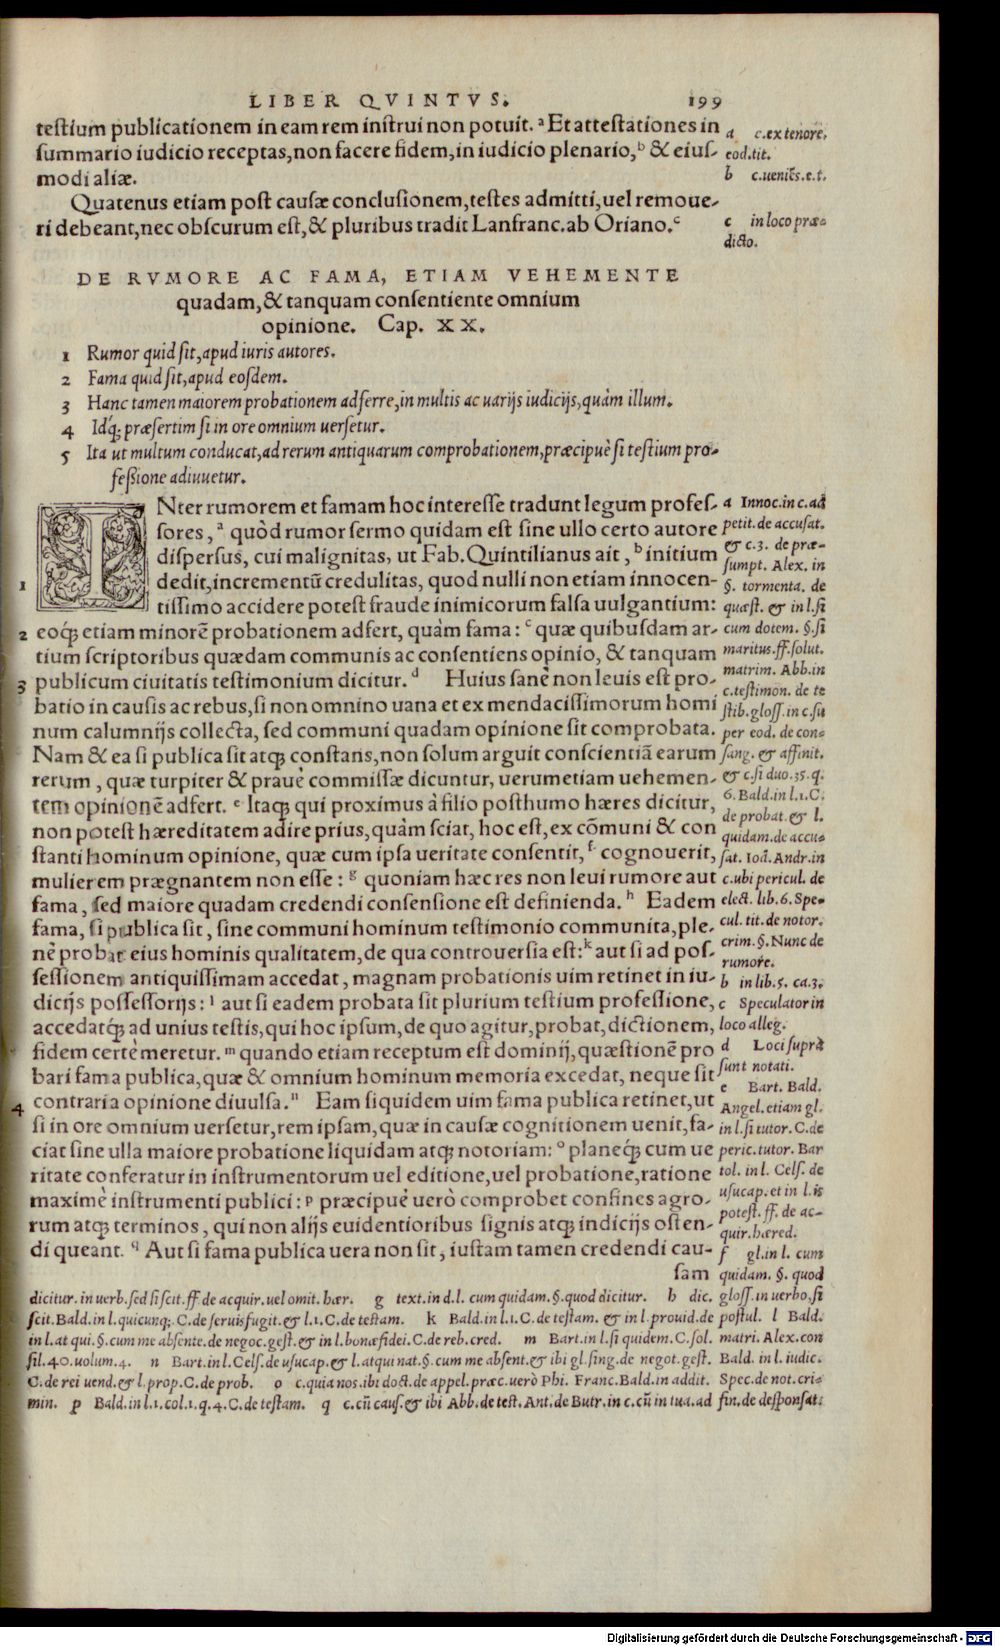 LIBER QVINTVS. 199
testium publicationem in eam rem instrui non potuit. ᵃ Et attestationes in
summario iudicio receptas, non facere fidem, in iudicio plenario, ᵇ & eius-
modi aliæ.
Quatenus etiam post causæ conclusionem, testes admitti, uel remoue-
ri debeant, nec obscurum est, & pluribus tradit Lanfranc. ab Oriano. ᶜ
a c. ex tenore.
eod. tit.
b c. ueniēs. e. t.
c in loco præ-
dicto.
DE RVMORE AC FAMA, ETIAM VEHEMENTE
quadam, & tanquam consentiente omnium
opinione. Cap. XX.
1 Rumor quid sit, apud iuris autores.
2 Fama quid sit, apud eosdem.
3 Hanc tamen maiorem probationem adferre, in multis ac uarijs iudicijs, quàm illum.
4 Idq́; præsertim si in ore omnium uersetur.
5 Ita ut multum conducat, ad rerum antiquarum comprobationem, præcipuè si testium pro-
fessione adiuuetur.
INter rumorem et famam hoc interesse tradunt legum profes-
sores, ᵃ quòd rumor sermo quidam est sine ullo certo autore
dispersus, cui malignitas, ut Fab. Quintilianus ait, ᵇ initium
1 dedit, incrementū credulitas, quod nulli non etiam innocen-
tissimo accidere potest fraude inimicorum falsa uulgantium:
2 eoq́; etiam minorē probationem adfert, quàm fama: ᶜ quæ quibusdam ar-
tium scriptoribus quædam communis ac consentiens opinio, & tanquam
3 publicum ciuitatis testimonium dicitur. ᵈ Huius sanè non leuis est pro-
batio in causis ac rebus, si non omnino uana et ex mendacissimorum homi
num calumnijs collecta, sed communi quadam opinione sit comprobata.
Nam & ea si publica sit atq; constans, non solum arguit conscientiā earum
rerum, quæ turpiter & prauè commissæ dicuntur, uerumetiam uehemen-
tem opinionē adfert. ᵉ Itaq; qui proximus à filio posthumo hæres dicitur,
non potest hæreditatem adire prius, quàm sciat, hoc est, ex cōmuni & con
stanti hominum opinione, quæ cum ipsa ueritate consentit, ᶠ cognouerit,
mulierem prægnantem non esse: ᵍ quoniam hæc res non leui rumore aut
fama, sed maiore quadam credendi consensione est definienda. ʰ Eadem
fama, si publica sit, sine communi hominum testimonio communita, ple-
nè probat eius hominis qualitatem, de qua controuersia est: ᵏ aut si ad pos-
sessionem antiquissimam accedat, magnam probationis uim retinet in iu-
dicijs possessorijs: ˡ aut si eadem probata sit plurium testium professione,
accedatq́; ad unius testis, qui hoc ipsum, de quo agitur, probat, dictionem,
fidem certè meretur. ᵐ quando etiam receptum est dominij, quæstionē pro
bari fama publica, quæ & omnium hominum memoria excedat, neque sit
4 contraria opinione diuulsa. ⁿ Eam siquidem uim fama publica retinet, ut
si in ore omnium uersetur, rem ipsam, quæ in causæ cognitionem uenit, fa-
ciat sine ulla maiore probatione liquidam atq; notoriam: ᵒ planeq́; cum ue
ritate conferatur in instrumentorum uel editione, uel probatione, ratione
maximè instrumenti publici: ᵖ præcipuè uerò comprobet confines agro-
rum atq; terminos, qui non alijs euidentioribus signis atq; indicijs osten-
di queant. ۹ Aut si fama publica uera non sit, iustam tamen credendi cau-
sam
a Innoc. in c. ad
petit. de accusat.
& c. 3. de præ-
sumpt. Alex. in
§. tormenta. de
quæst. & in l. si
cum dotem. §. si
maritus. ff. solut.
matrim. Abb. in
c. testimon. de te
stib. gloss. in c. su
per eod. de con-
sang. & affinit.
& c. si duo. 35. q.
6. Bald. in l. 1. C.
de probat. & l.
quidam. de accu-
sat. Ioā. Andr. in
c. ubi pericul. de
elect. lib. 6. Spe-
cul. tit. de notor.
crim. §. Nunc de
rumore.
b in lib. 5. ca. 3.
c Speculator in
loco alleg.
d Loci suprà
sunt notati.
e Bart. Bald.
Angel. etiam gl.
in l. si tutor. C. de
peric. tutor. Bar
tol. in l. Cels. de
usucap. et in l. is
potest. ff. de ac-
quir. hæred.
f gl. in l. cum
quidam. §. quod
dicitur. in uerb. sed si scit. ff. de acquir. uel omit. hær. g text. in d. l. cum quidam. §. quod dicitur. h dic. gloss. in uerbo, si
scit. Bald. in l. quicunq;. C. de seruis fugit. & l. 1. C. de testam. k Bald. in l. 1. C. de testam. & in l. prouid. de postul. l Bald.
in l. at qui. §. cum me absente. de negoc. gest. & in l. bonæ fidei. C. de reb. cred. m Bart. in l. si quidem. C. sol. matri. Alex. con
sil. 40. uolum. 4. n Bart. in l. Cels. de usucap. & l. atqui nat. §. cum me absent. & ibi gl. sing. de negot. gest. Bald. in l. iudic.
C. de rei uend. & l. prop. C. de prob. o c. quia nos. ibi doct. de appel. præc. uerò Phi. Franc. Bald. in addit. Spec. de not. cri-
min. p Bald. in l. 1. col. 1. q. 4. C. de testam. q c. cū caus. & ibi Abb. de test. Ant. de Butr. in c. cū in tua. ad fin. de desponsat.
Digitalisierung gefördert durch die Deutsche Forschungsgemeinschaft - DFG